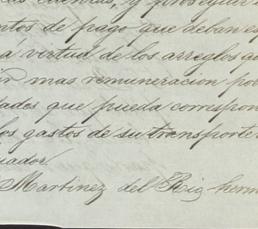 cuentas, y proseguir
ntos de pago que deban es
á virtud de los arreglos que
in mas remuneracion por
dados que pueda correspon
los gastos de su transporte
uador.
Martinez del Rio herm